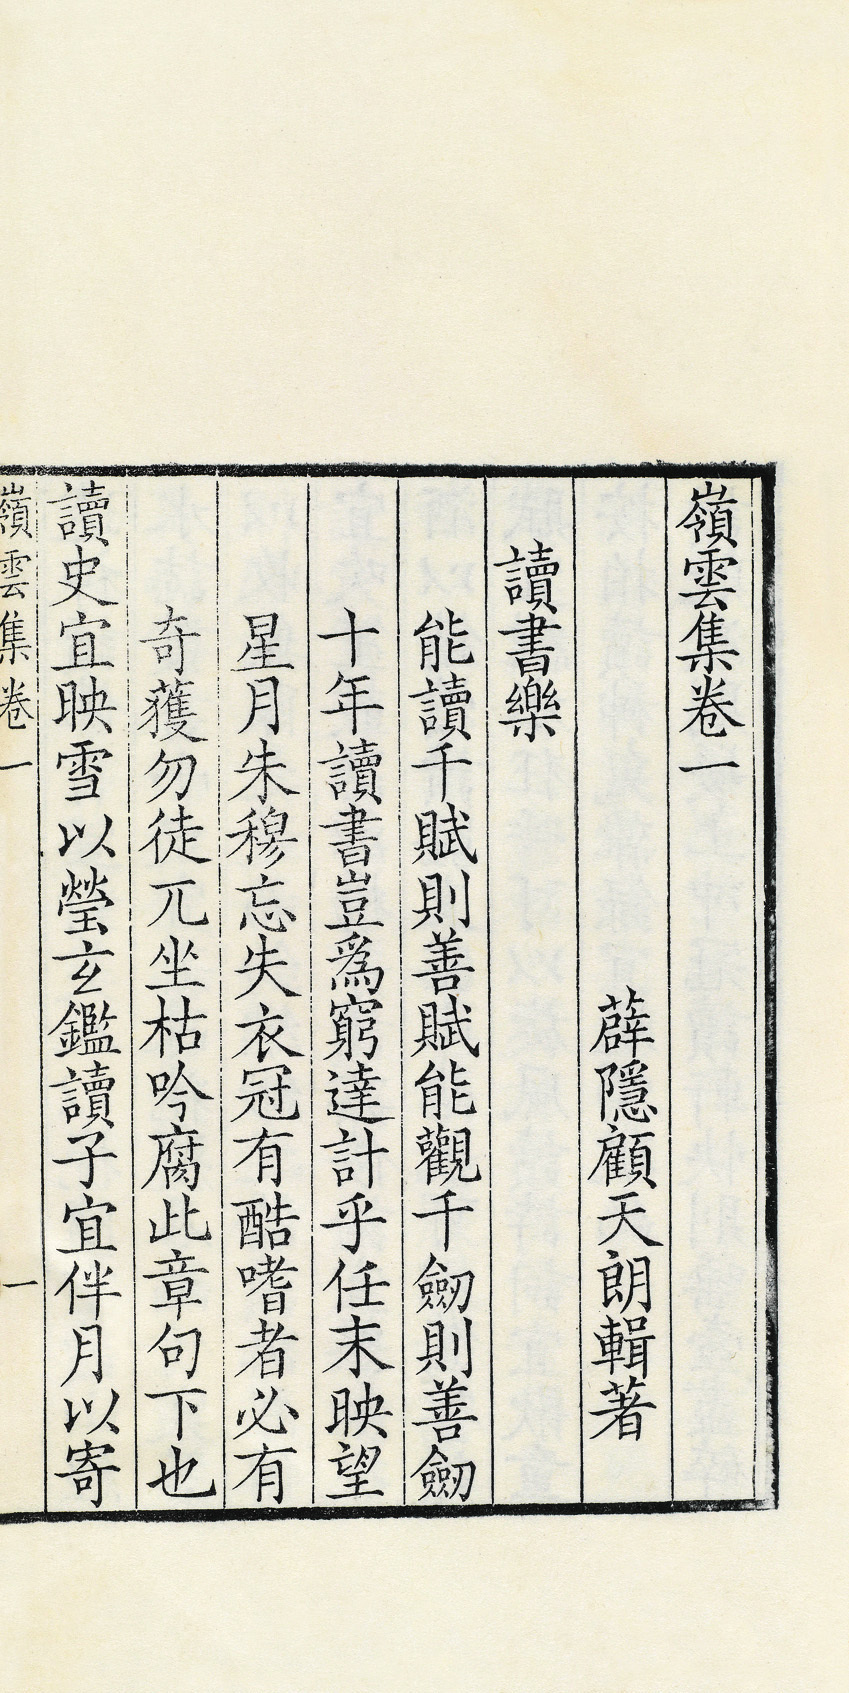 嶺雲集卷一
薜隱顧天朗輯著
讀書樂
能讀千賦則善賦能觀千劒則善劒
十年讀書豈爲窮達計乎任末映望
星月朱穆忘失衣冠有酷嗜者必有
奇獲勿徒兀坐枯吟腐此章句下也
讀史宜映雪以瑩玄鑑讀子宜伴月以寄
嶺雲集卷一
一